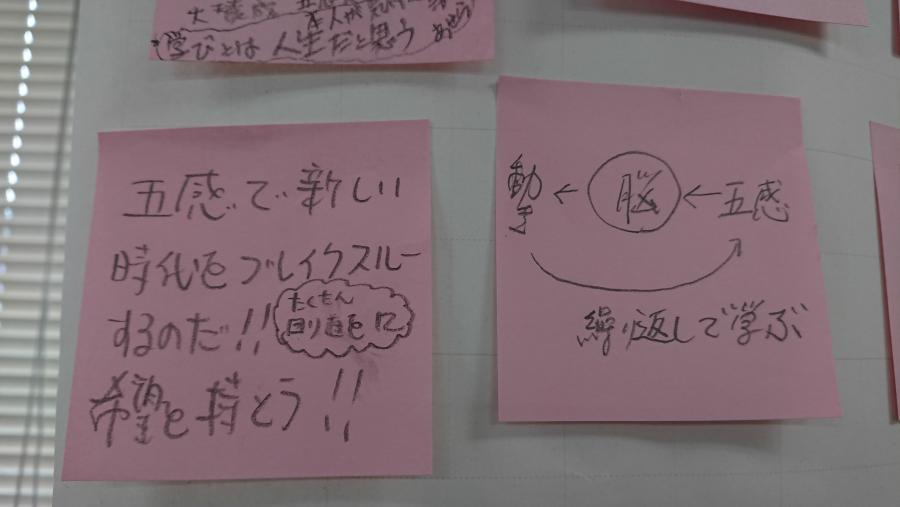 学びとは 人生だと思う
五感で新しい
時代をブレイクスルー
するのだ!!
たくさん
回り道を
希望を持とう!!
動き ← 脳 ← 五感
繰り返しで学ぶ